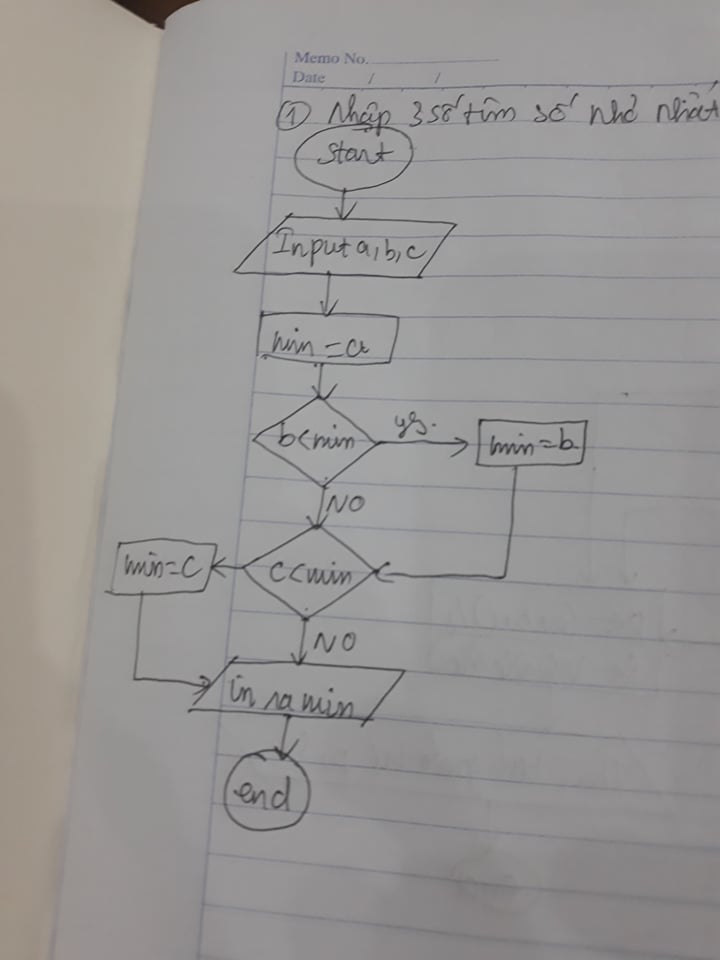 Memo No.
Date / /
① Nhập 3 số tìm số nhỏ nhất
Start
Input a, b, c
min = a
b < min
yes.
min = b
NO
c < min
min = c
NO
in ra min
end